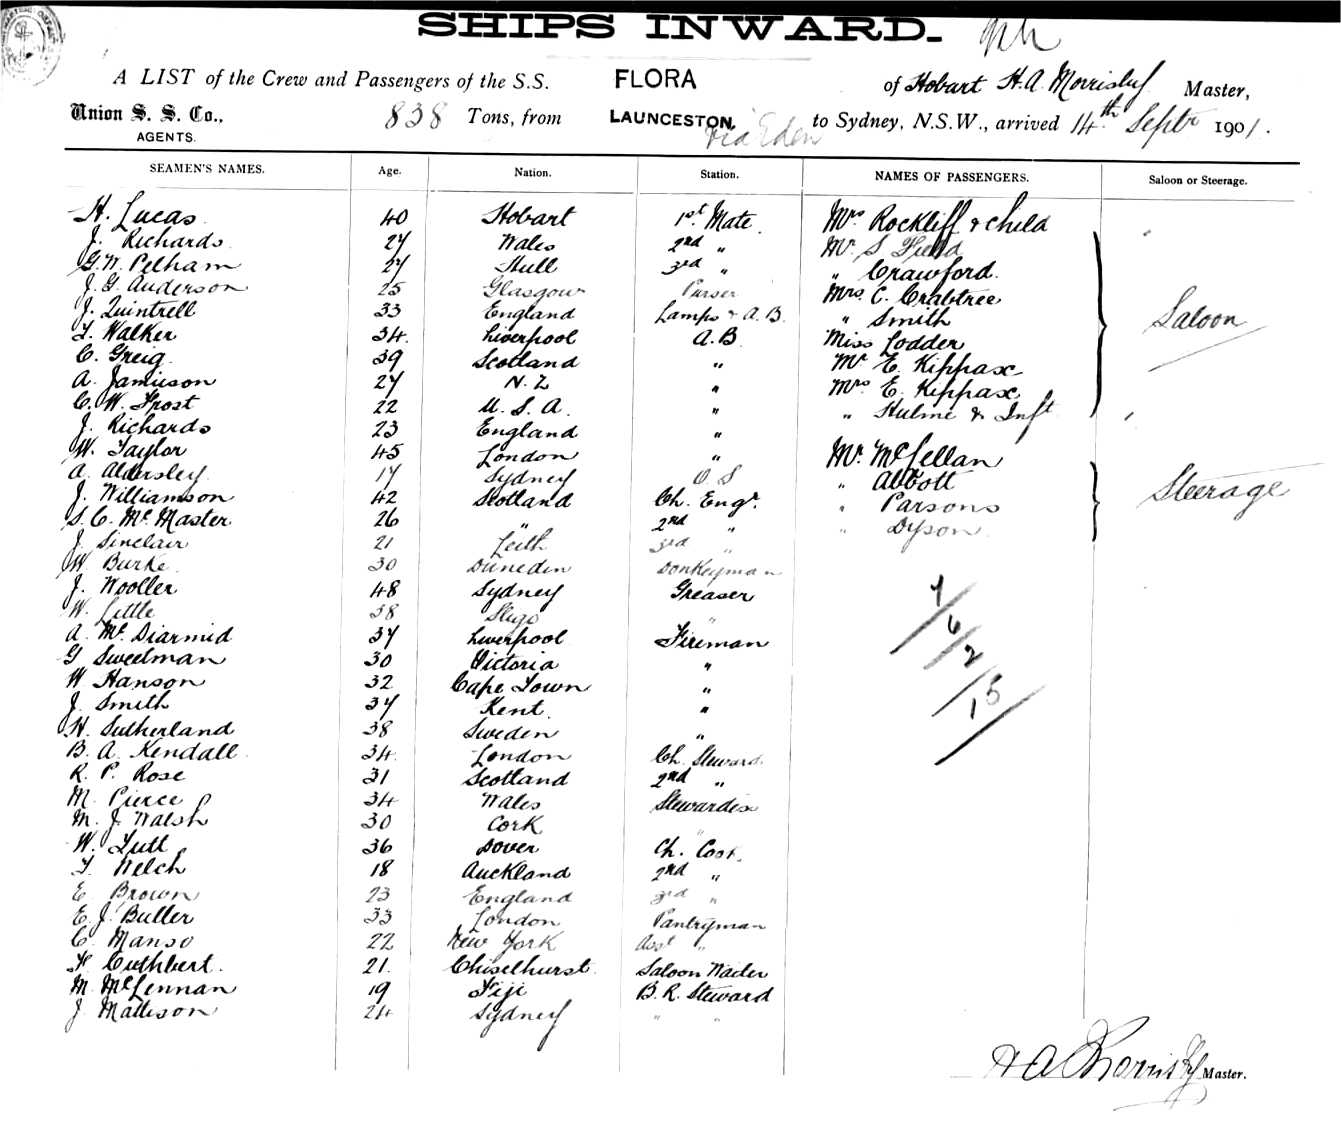 SHIPS INWARD.
A LIST of the Crew and Passengers of the S.S. FLORA of Hobart H. A. Morrisby Master,
Union S. S. Co., AGENTS. 838 Tons, from LAUNCESTON, via Eden to Sydney, N.S.W., arrived 14th Septr 1901.
SEAMEN'S NAMES. Age. Nation. Station. NAMES OF PASSENGERS. Saloon or Steerage.
H. Lucas 40 Hobart 1st Mate Mrs Rockliff & child
J. Richards 27 Wales 2nd " Mr S Field
G. W. Pelham 27 Hull 3rd " " Crawford
J. G. Anderson 25 Glasgow Purser Mrs C. Crabtree
J. Quintrell 33 England Lamps & A.B. " Smith Saloon
T. Walker 34 Liverpool A.B Miss Lodder
C. Greig 39 Scotland " Mr E. Kippax
A. Jamieson 27 N.Z " Mrs E. Kippax
C. W. Frost 22 U.S.A. " " Hulme & Inft
J. Richards 23 England "
W. Taylor 45 London " Mr. McLellan
A. Aldersley 17 Sydney O.S " Abbott
J. Williamson 42 Scotland Ch. Engr. " Parsons Steerage
S. C. McMaster 26 " 2nd " " Dyson
J Sinclair 21 Leith 3rd "
W. Burke 30 Dunedin Donkeyman
J. Wooller 48 Sydney Greaser 7
W. Little 38 Sligo " 6
A. McDiarmid 37 Liverpool Fireman 2
G Sweetman 30 Victoria "
W Hanson 32 Cape Town " 15
J. Smith 37 Kent "
H. Sutherland 38 Sweden "
B. A. Kendall 34 London Ch. Steward
R. P. Rose 31 Scotland 2nd "
M. Pierce 34 Wales Stewardess
M. J. Walsh 30 Cork "
W. Tutt 36 Dover Ch. Cook
T. Welch 18 Auckland 2nd "
E Brown 23 England 3rd "
E. J. Butler 33 London Pantryman
C. Manso 22 New York Asst "
F. Cuthbert 21 Chiselhurst Saloon Waiter
M. McLennan 19 Fiji B.R. Steward
J Mattison 24 Sydney " "
H A Morrisby Master.